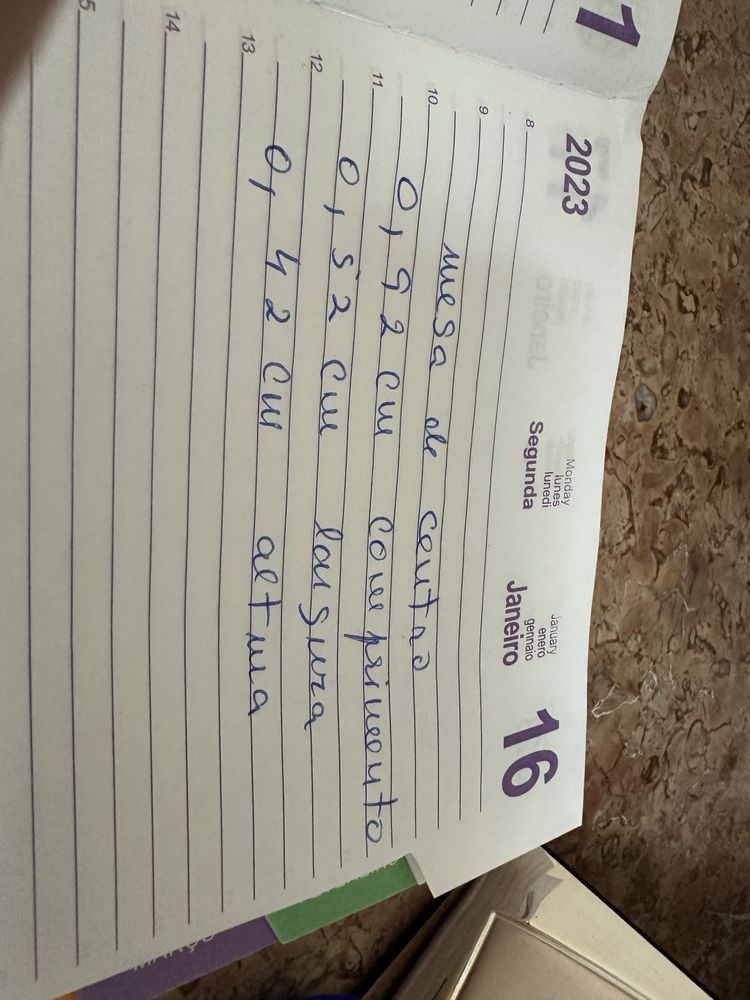 1
2023
Monday
lunes
lunedi
Segunda
January
enero
gennaio
Janeiro
16
8
9
mesa de centro
10
0,92 cm comprimento
11
0,52 cm largura
12
0,42 cm altura
13
14